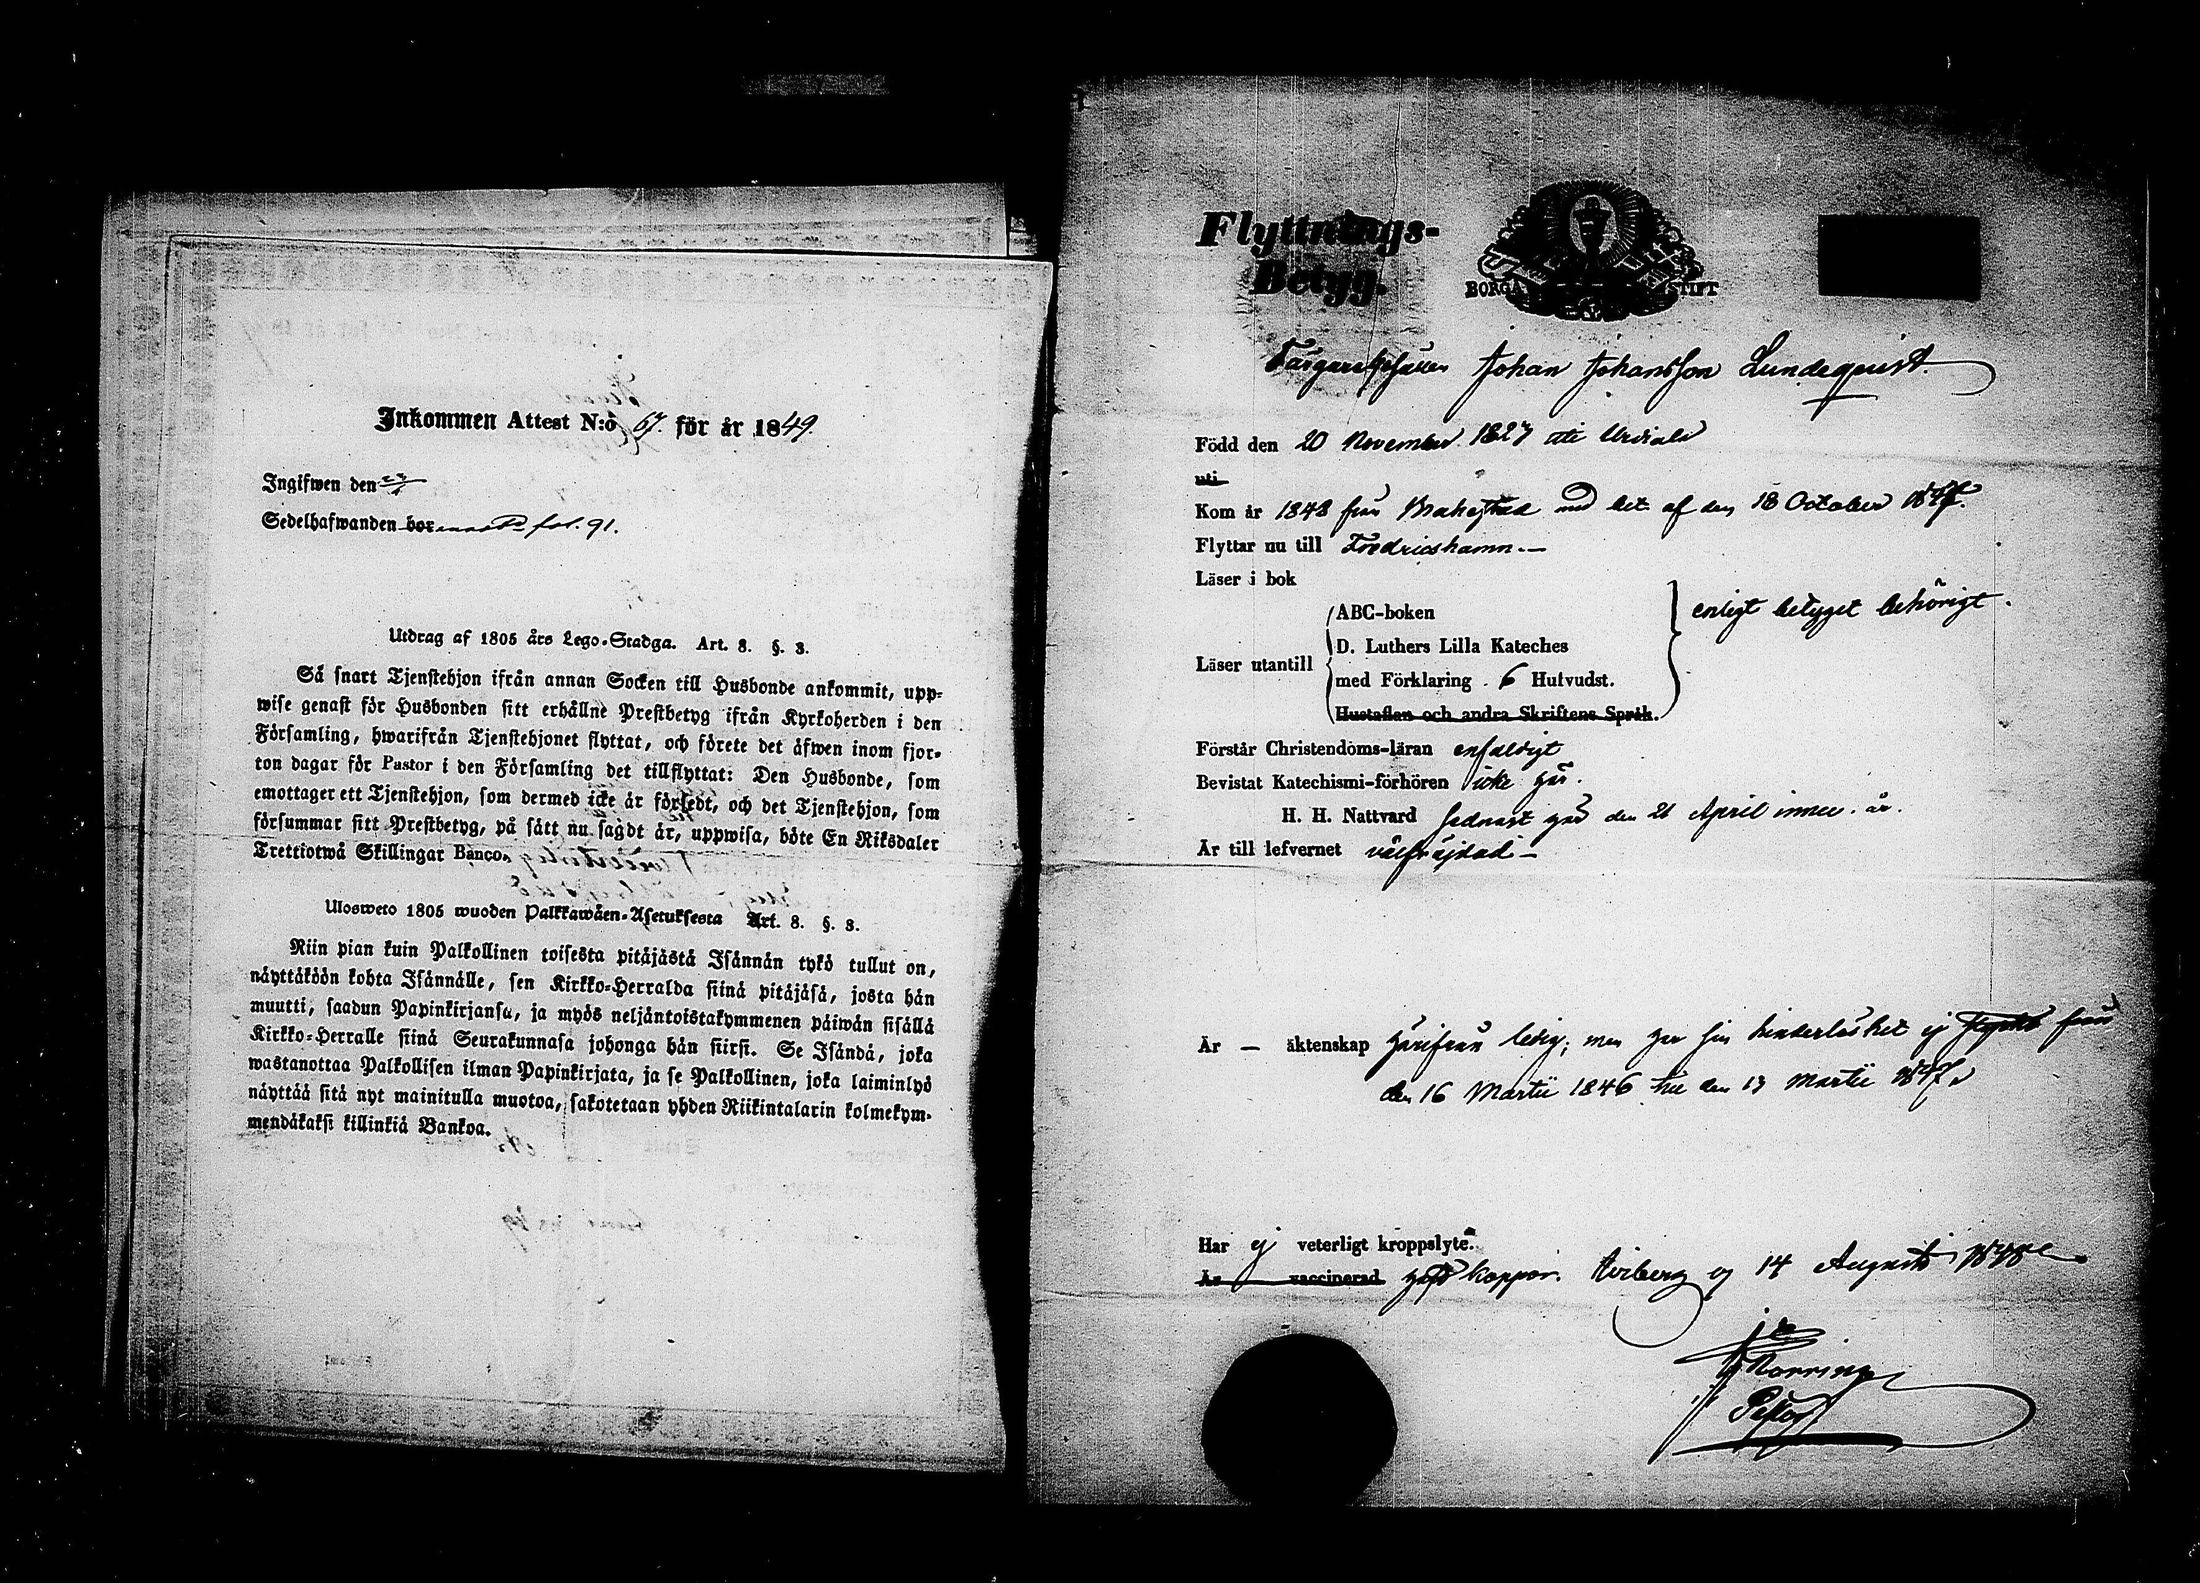 Inkommen Attest N:o 67. för år 1849.
Ingifwen den
Sedelhafwanden bor fol. 91.
Utdrag af 1805 års Lego-Stadga. Art. 8. §. 3.
Så snart Tjenstehjon ifrån annan Socken till Husbonde ankommit, upp-
wise genast för Husbonden sitt erhållne Prestbetyg ifrån Kyrkoherden i den
Församling, hwarifrån Tjenstehjonet flyttat, och förete det åfwen inom fjor-
ton dagar för Pastor i den Församling det tillflyttat: Den Husbonde, som
emottager ett Tjenstehjon, som dermed icke är försedt, och det Tjenstehjon, som
försummar sitt Prestbetyg, på sätt nu sagdt är, uppwisa, böte En Riksdaler
Trettiotwå Skillingar Banco.
Ulosweto 1805 wuoden Palkkawäen-Asetuksesta Art. 8. §. 3.
Niin pian kuin Palkollinen toisesta pitäjästä Isännän tykö tullut on,
näyttäköön kohta Isännälle, sen Kirkko-Herralda siinä pitäjäsä, josta hän
muutti, saadun Papinkirjansa, ja myös neljäntoistakymmenen päiwän sisällä
Kirkko-Herralle siinä Seurakunnasa johonga hän siirsi. Se Isändä, joka
wastanottaa Palkollisen ilman Papinkirjata, ja se Palkollinen, joka laiminlyö
näyttää sitä nyt mainitulla muotoa, sakotetaan yhden Riikintalarin kolmekym-
mendäkaksi killinkiä Bankoa.
Flyttnings-
Betyg.
BORGÅ STIFT
Johan Johansson Lundeqvist.
Född den 20 November 1827 uti Urdiala
uti
Kom år 1848 från med bet. af den 18 October 1847.
Flyttar nu till Fredricshamn.
Läser i bok
Läser utantill
ABC-boken
D. Luthers Lilla Kateches
med Förklaring 6 Hufvudst.
Hustaflan och andra Skriftens Språk.
enligt betyget behörigt.
Förstår Christendoms-läran enfaldigt
Bevistat Katechismi-förhören icke här.
H. H. Nattvard sednast här den 21 April innev. år.
Är till lefvernet välfräjdad
Är — äktenskap härifrån ledig; men har sin hinderlöshet ej styrkt från
den 16 Martii 1846 till den 13 Martii 1847.
Har ej veterligt kroppslyte.
Är vaccinerad haft koppor. Wiborg 14 Augusti 1848